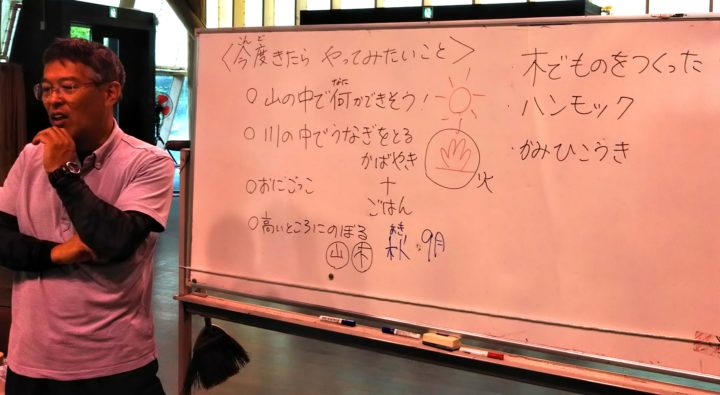 <今度きたら やってみたいこと>
こんど
○山の中で何ができそう!
なに
○川の中でうなぎをとる
かばやき
○おにごっこ
+
ごはん
火
○高いところにのぼる
山 木
あき
秋 9月
木でものをつくった
・ハンモック
・かみひこうき